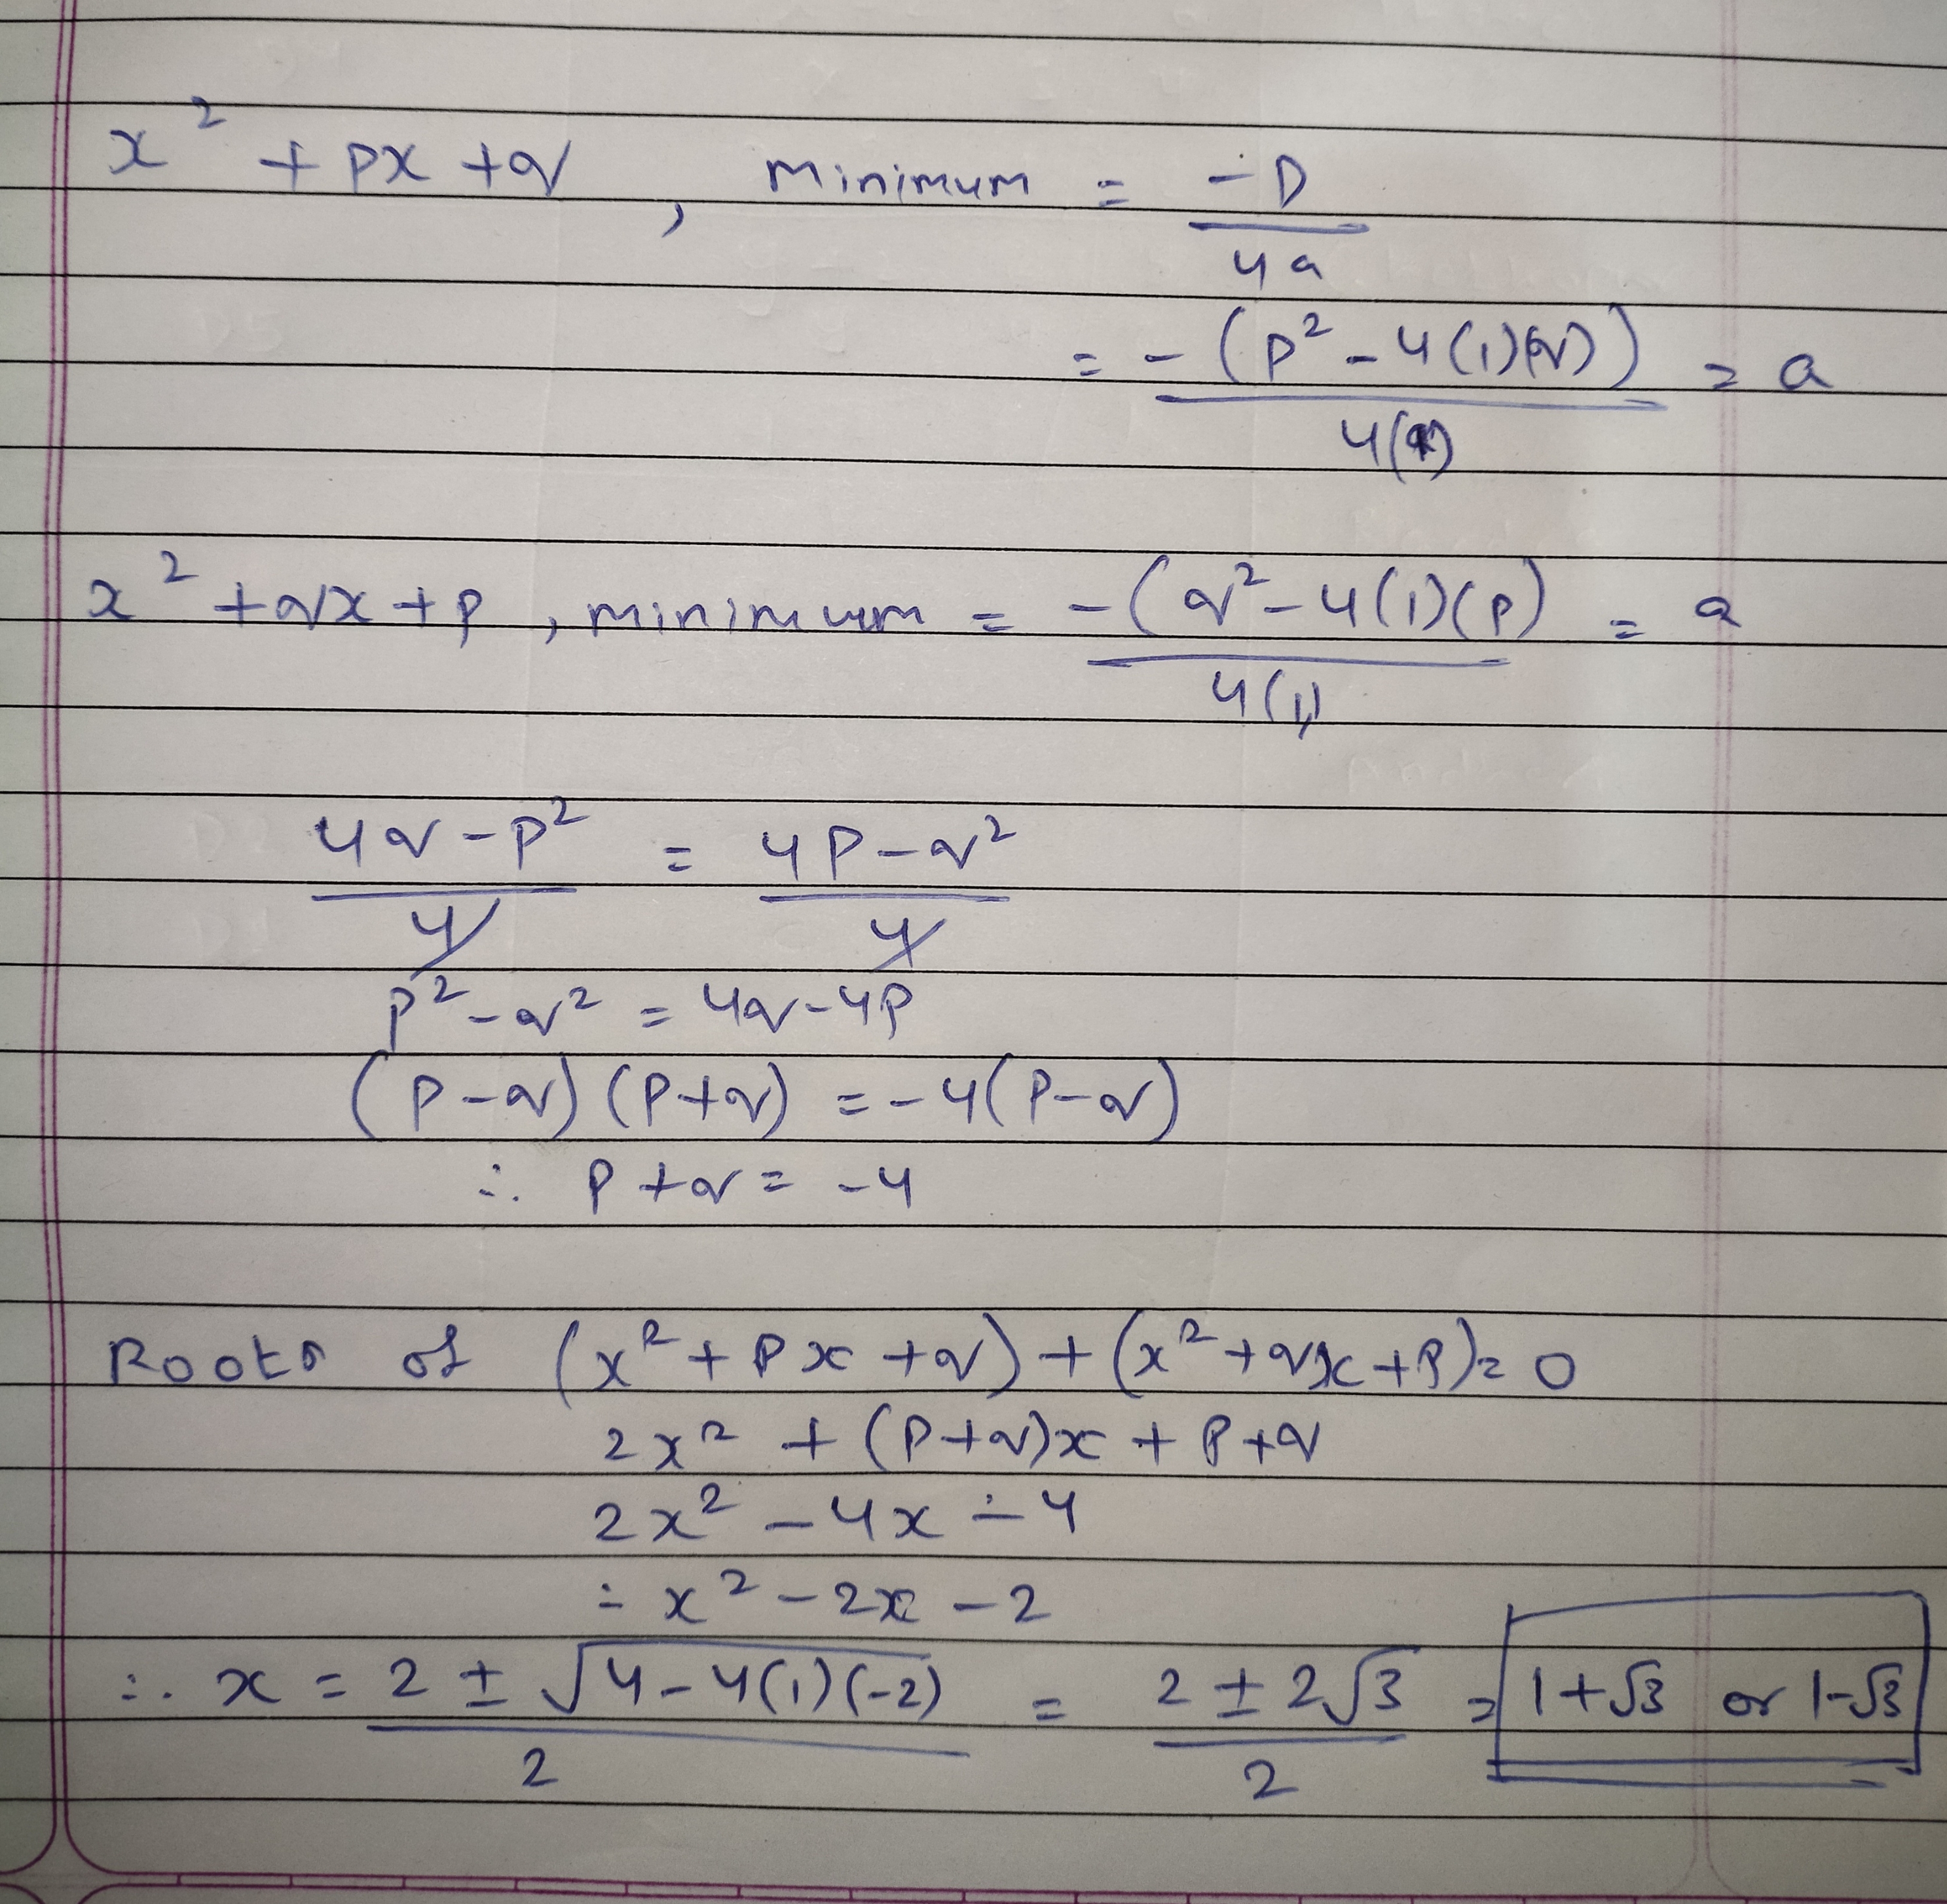 x² + px + q , minimum = -D/4a
= -(p² - 4(1)(q))/4(1) = a
x² + qx + p , minimum = -(q² - 4(1)(p)/4(1) = a
4q - p²/4 = 4p - q²/4
p² - q² = 4q - 4p
(p - q) (p + q) = -4(p - q)
∴ p + q = -4
Roots of (x² + px + q) + (x² + qx + p) = 0
2x² + (p+q)x + p + q
2x² - 4x - 4
= x² - 2x - 2
∴ x = 2 ± √4 - 4(1)(-2)/2 = 2 ± 2√3/2 = 1+√3 or 1-√3